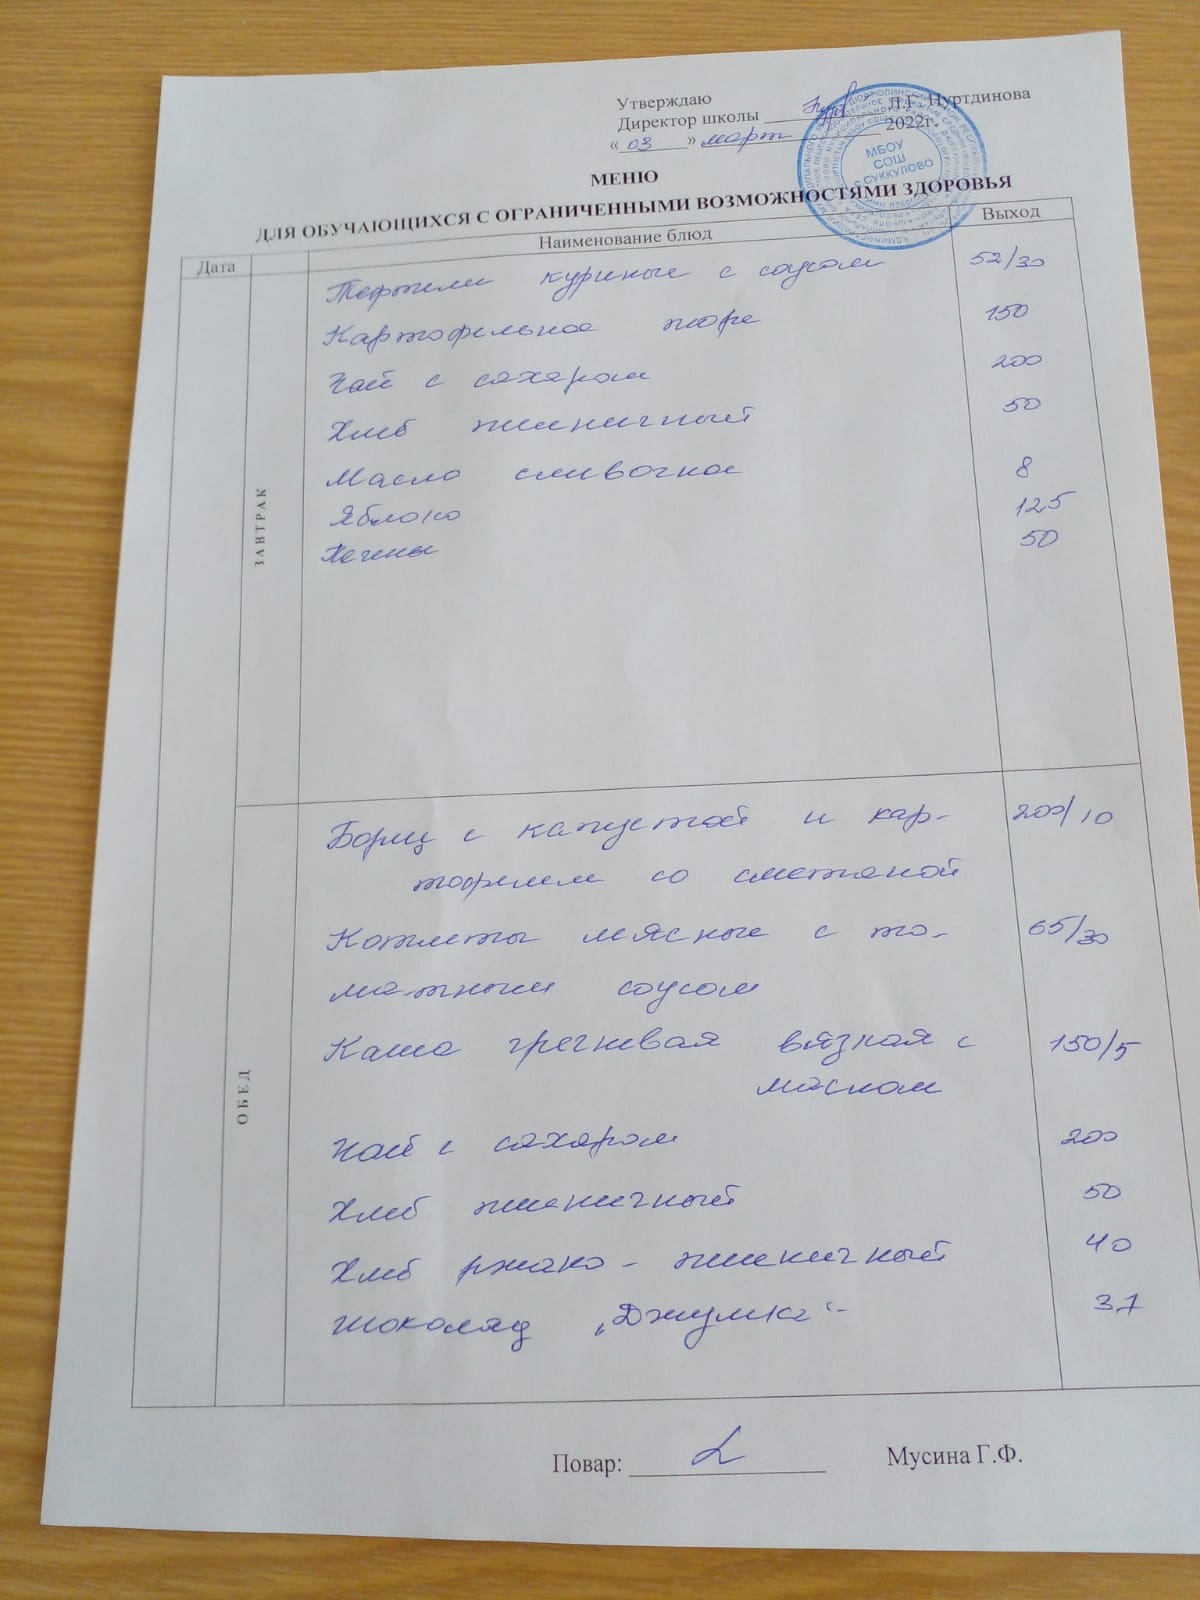 Утверждаю
Директор школы Л.Г. Нуртдинова
«03» март 2022г.
МБОУ
СОШ
с СУККУЛОВО
МЕНЮ
ДЛЯ ОБУЧАЮЩИХСЯ С ОГРАНИЧЕННЫМИ ВОЗМОЖНОСТЯМИ ЗДОРОВЬЯ
Дата Наименование блюд Выход
ЗАВТРАК
Тефтели куриные с соусом 52/30
Картофельное пюре 150
Чай с сахаром 200
Хлеб пшеничный 50
Масло сливочное 8
Яблоко 125
50
ОБЕД
Борщ с капустой и кар- 200/10
тофелем со сметаной
Котлеты мясные с то- 65/30
матным соусом
Каша гречневая вязкая с 150/5
маслом
Чай с сахаром 200
Хлеб пшеничный 50
Хлеб ржано-пшеничный 40
Шоколад „Джумка" 37
Повар: Мусина Г.Ф.